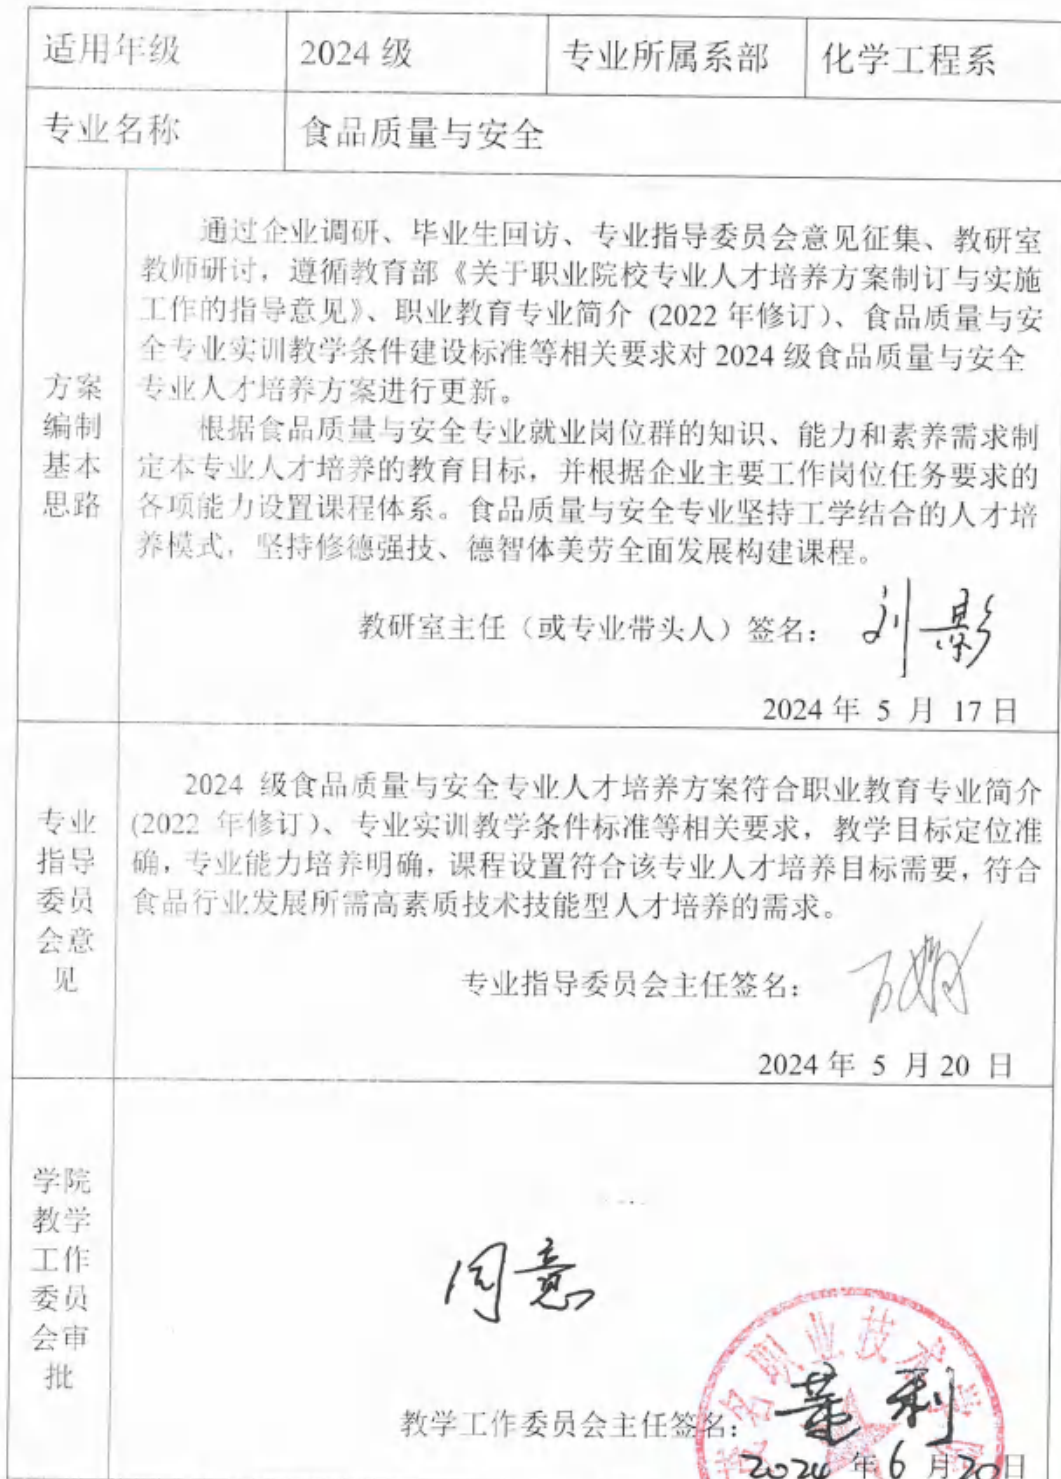 适用年级 2024 级 专业所属系部 化学工程系
专业名称 食品质量与安全
方案
编制
基本
思路
通过企业调研、毕业生回访、专业指导委员会意见征集、教研室
教师研讨，遵循教育部《关于职业院校专业人才培养方案制订与实施
工作的指导意见》、职业教育专业简介 (2022 年修订)、食品质量与安
全专业实训教学条件建设标准等相关要求对 2024 级食品质量与安全
专业人才培养方案进行更新。
根据食品质量与安全专业就业岗位群的知识、能力和素养需求制
定本专业人才培养的教育目标，并根据企业主要工作岗位任务要求的
各项能力设置课程体系。食品质量与安全专业坚持工学结合的人才培
养模式，坚持修德强技、德智体美劳全面发展构建课程。
教研室主任（或专业带头人）签名： 刘影
2024 年 5 月 17 日
专业
指导
委员
会意
见
2024 级食品质量与安全专业人才培养方案符合职业教育专业简介
(2022 年修订)、专业实训教学条件标准等相关要求，教学目标定位准
确，专业能力培养明确，课程设置符合该专业人才培养目标需要，符合
食品行业发展所需高素质技术技能型人才培养的需求。
专业指导委员会主任签名：
2024 年 5 月 20 日
学院
教学
工作
委员
会审
批
同意
名职业技术学院
教学工作委员会主任签名：
2024 年 6 月 20 日